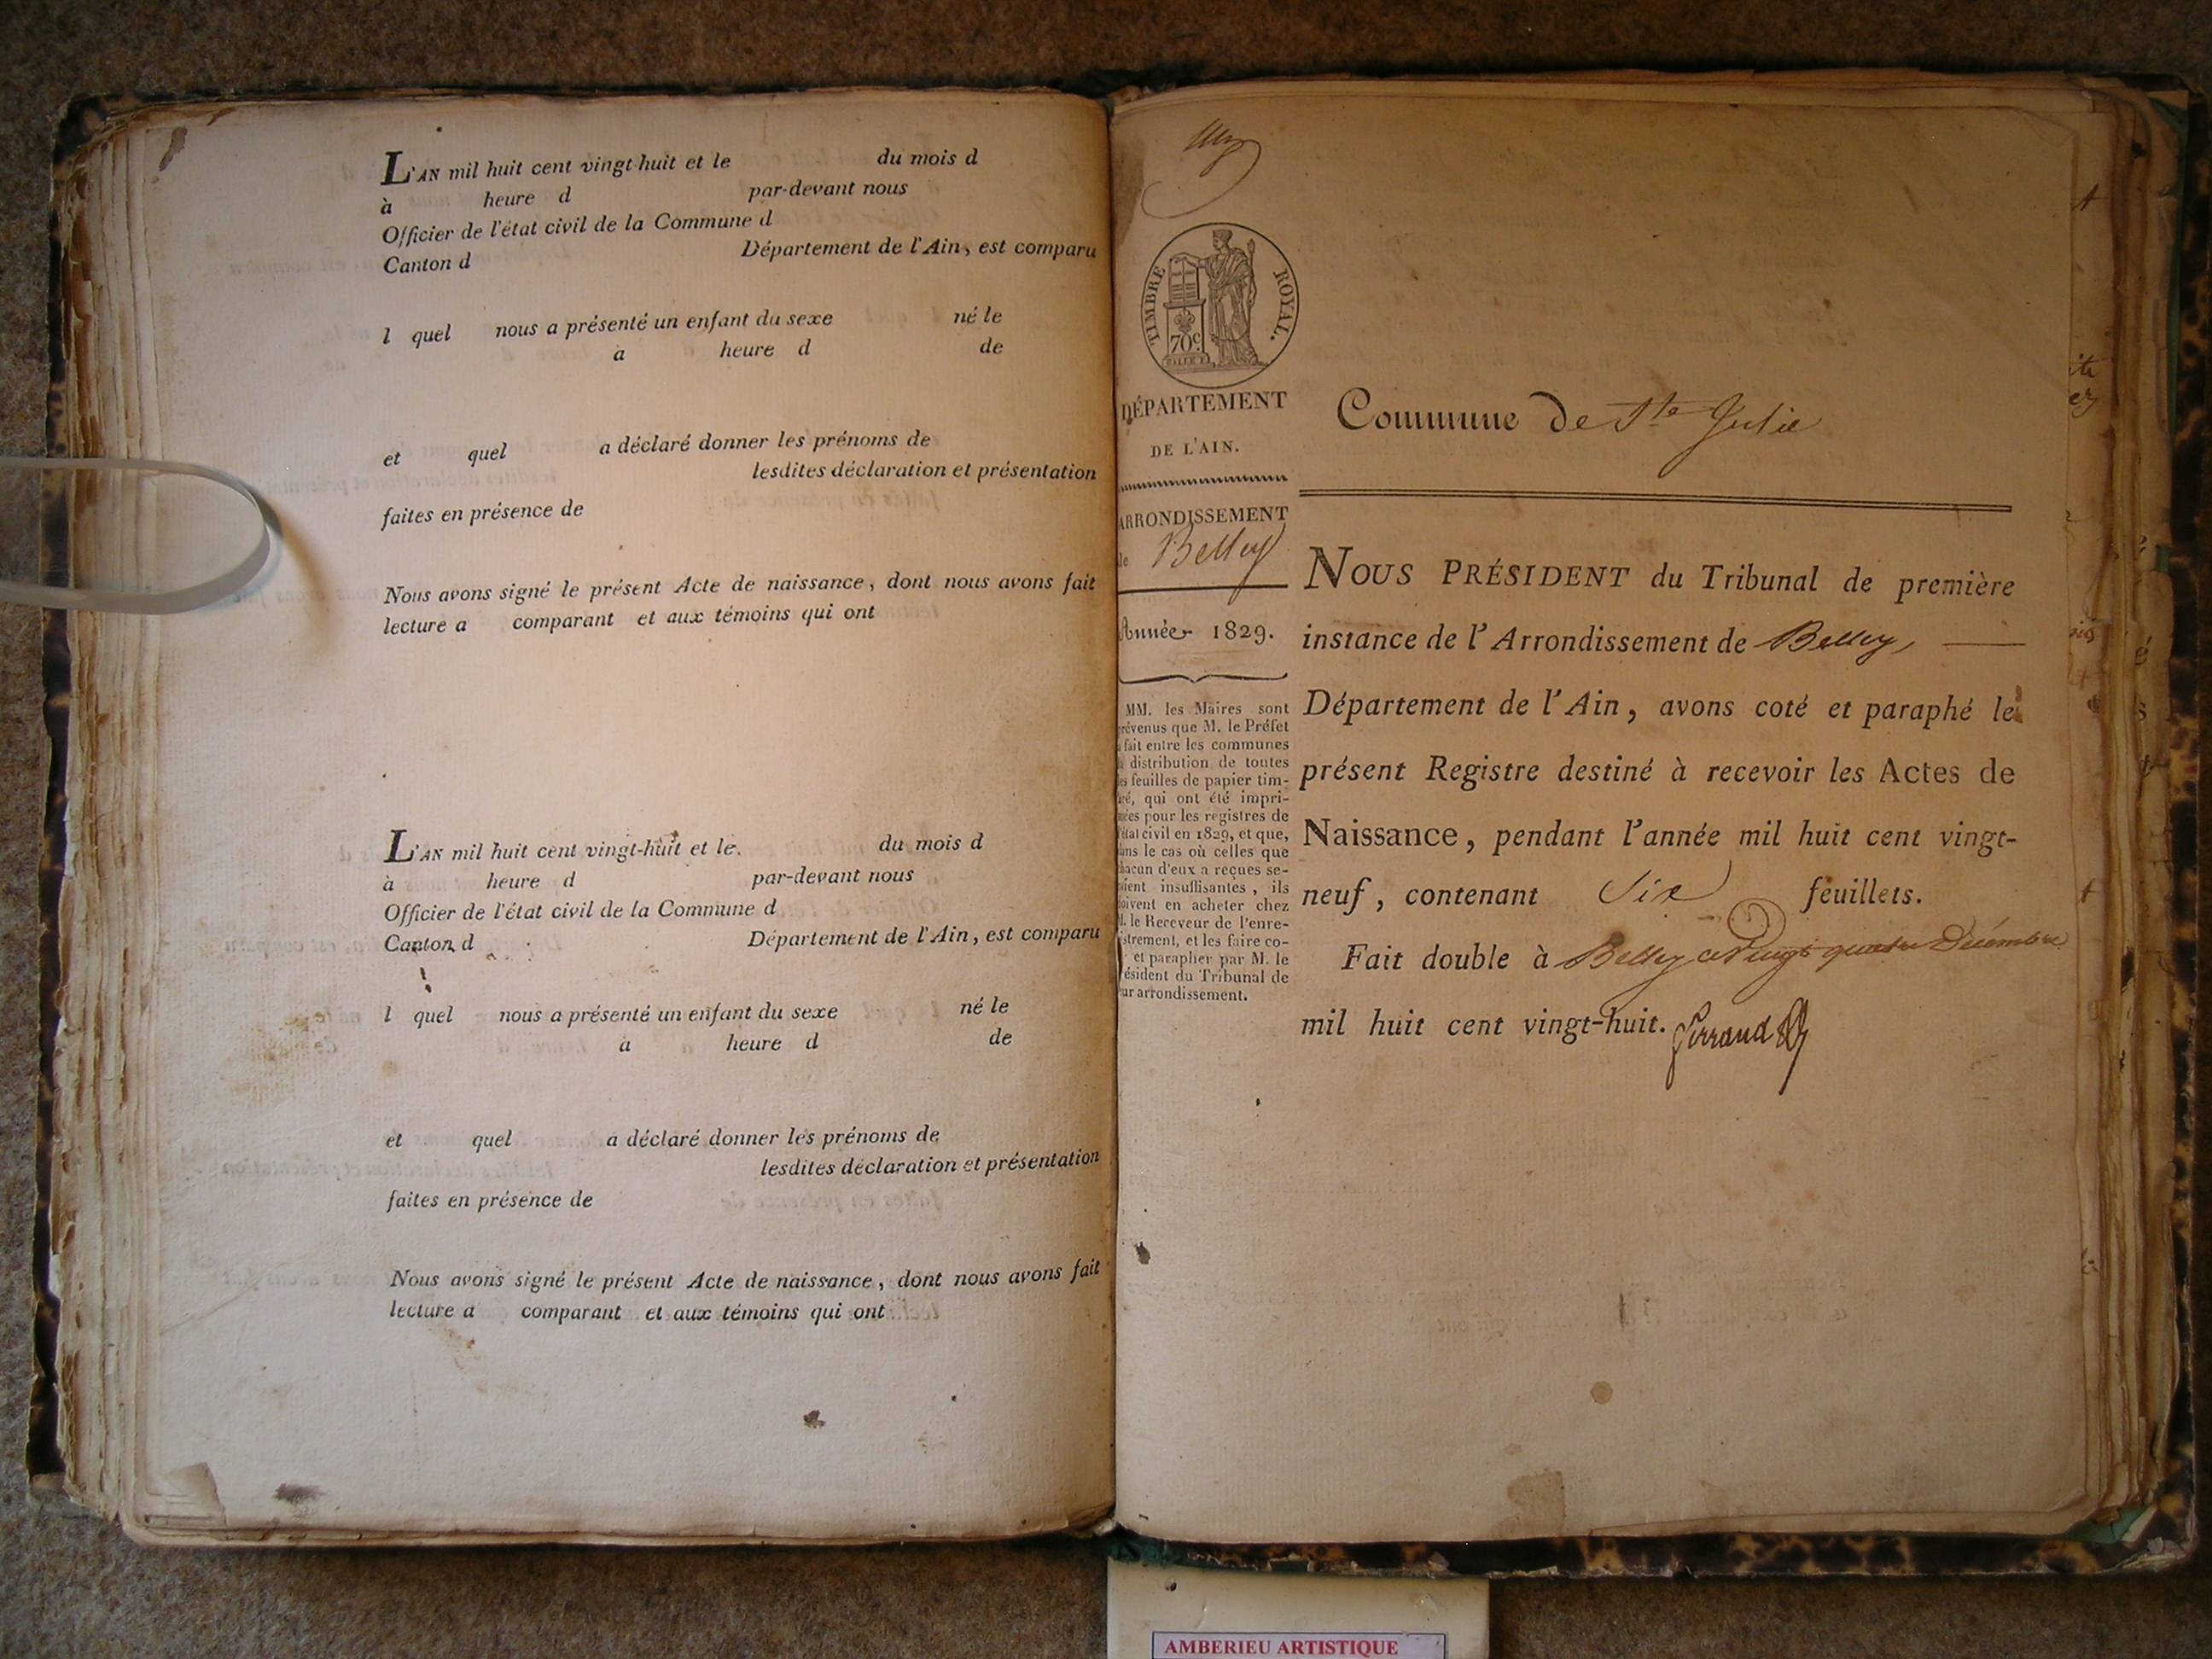 L'AN mil huit cent vingt-huit et le du mois d
à heure d par-devant nous
Officier de l'état civil de la Commune d
Canton d Département de l'Ain, est comparu
l quel nous a présenté un enfant du sexe né le
à heure d de
et quel a déclaré donner les prénoms de
lesdites déclaration et présentation
faites en présence de
Nous avons signé le présent Acte de naissance, dont nous avons fait
lecture a comparant et aux témoins qui ont
L'AN mil huit cent vingt-huit et le du mois d
à heure d par-devant nous
Officier de l'état civil de la Commune d
Canton d Département de l'Ain, est comparu
l quel nous a présenté un enfant du sexe né le
à heure d de
et quel a déclaré donner les prénoms de
lesdites déclaration et présentation
faites en présence de
Nous avons signé le présent Acte de naissance, dont nous avons fait
lecture a comparant et aux témoins qui ont
TIMBRE ROYAL.
70c
DÉPARTEMENT
DE L'AIN.
ARRONDISSEMENT
de Belley
Année 1829.
MM. les Maires sont
prévenus que M. le Préfet
a fait entre les communes
la distribution de toutes
les feuilles de papier tim-
bré, qui ont été impri-
mées pour les registres de
l'état civil en 1829, et que,
dans le cas où celles que
chacun d'eux a reçues se-
raient insuffisantes, ils
doivent en acheter chez
M. le Receveur de l'enre-
gistrement, et les faire co-
ter et parapher par M. le
Président du Tribunal de
leur arrondissement.
Commune de Ste Julie
NOUS PRÉSIDENT du Tribunal de première
instance de l'Arrondissement de Belley,
Département de l'Ain, avons coté et paraphé le
présent Registre destiné à recevoir les Actes de
Naissance, pendant l'année mil huit cent vingt-
neuf, contenant Six feuillets.
Fait double à Belley ce vingt quatre Décembre
mil huit cent vingt-huit.
AMBERIEU ARTISTIQUE